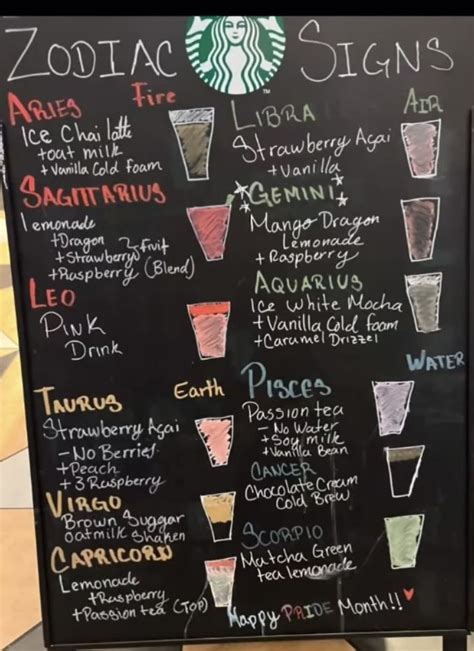 ZODIAC SIGNS
ARIES
Fire
Ice Chai latte
+oat milk
+Vanilla Cold foam
SAGITTARIUS
lemonade
+Dragon
+Strawberry } fruit
+Raspberry (Blend)
LEO
PINK
DRINK
TAURUS
Earth
Strawberry Açai
- NO Berries
+Peach
+3 Raspberry
VIRGO
Brown Suggar
oatmilk shaken
CAPRICORN
Lemonade
+Raspberry
+Passion tea (TOP)
LIBRA
AIR
Strawberry Açai
+Vanilla
GEMINI
Mango Dragon
Lemonade
+Raspberry
AQUARIUS
Ice White Mocha
+Vanilla Cold foam
+Caramel Drizzel
WATER
PISCES
Passion tea
- No Water
+Soy milk
+Vanilla Bean
CANCER
Chocolate Cream
Cold Brew
SCORPIO
Matcha Green
tea lemonade
Happy PRIDE Month!!